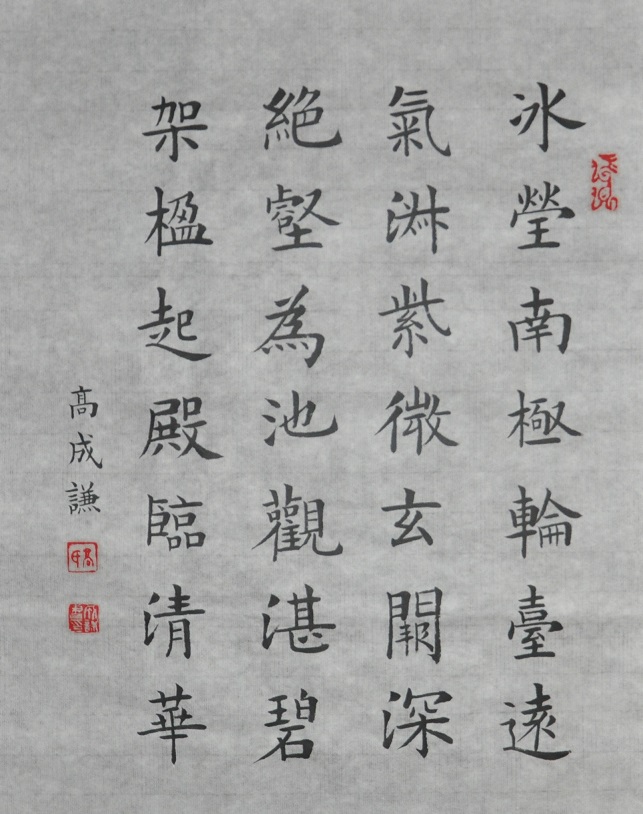 冰瑩南極輪臺遠
氣淋紫微玄闕深
絕壑為池觀湛碧
架楹起殿臨清華
髙成謙